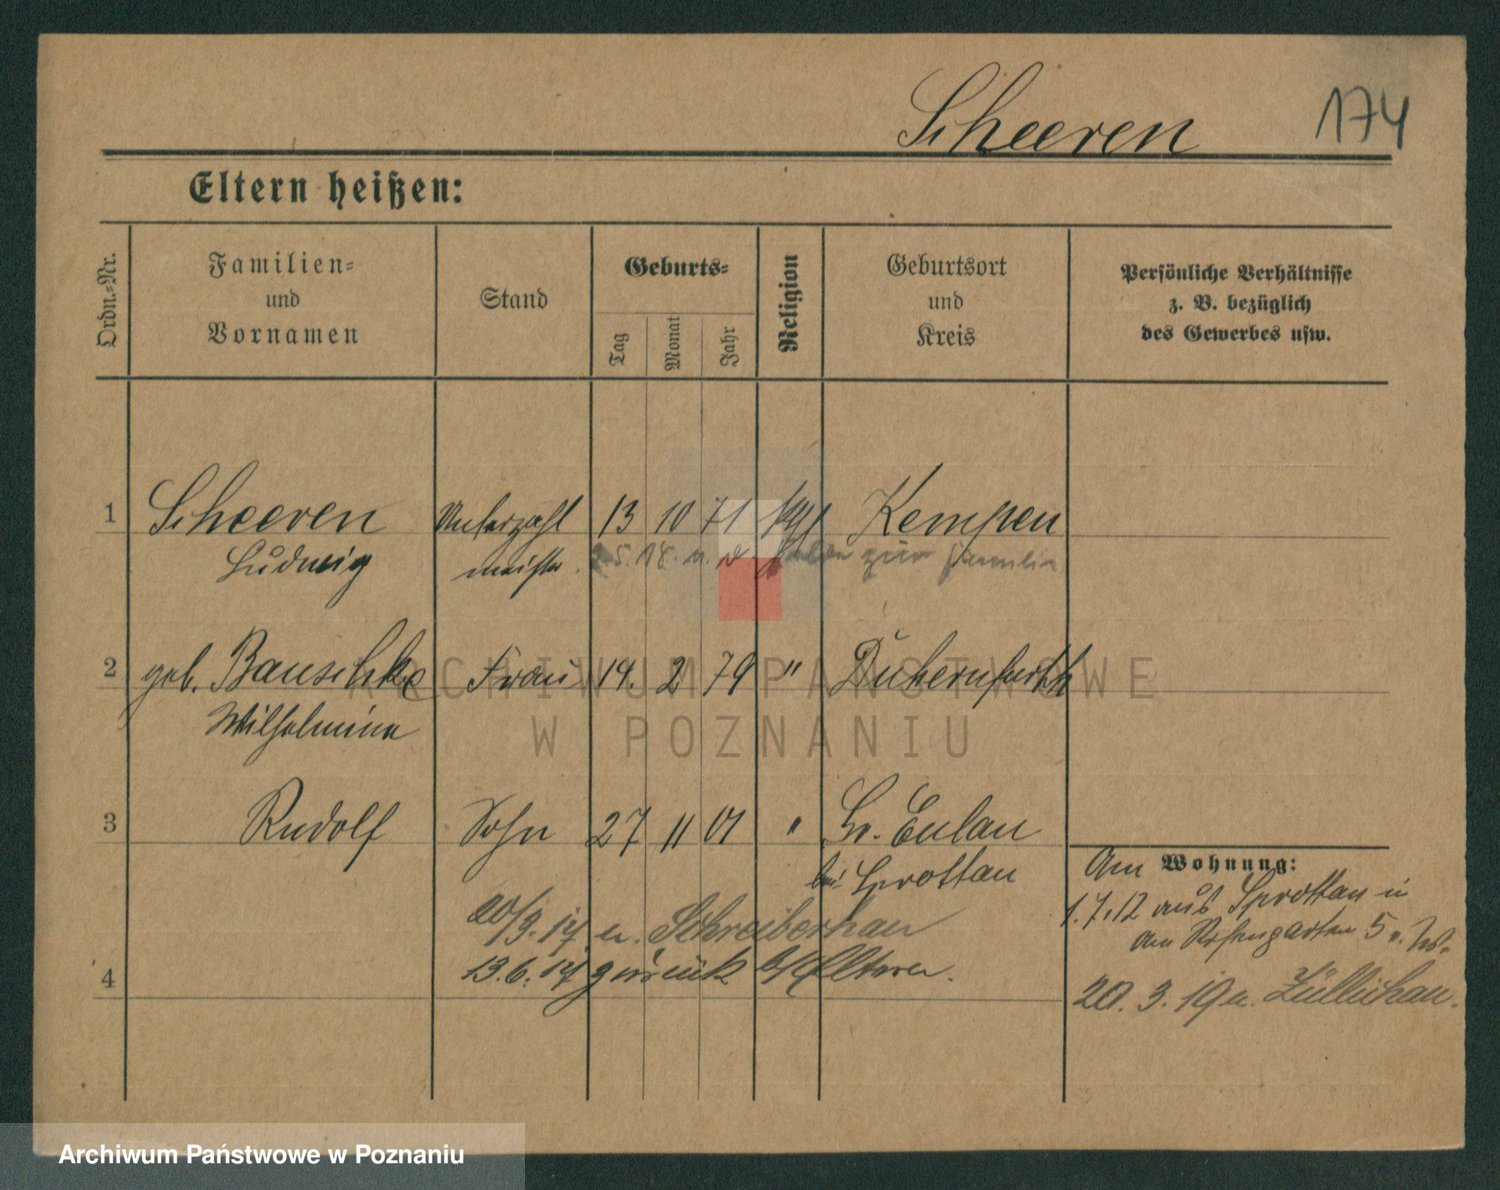 Scheeren 174
Eltern heißen:
Ordn.-Nr. Familien- und Vornamen Stand Geburts- Tag Monat Jahr Religion Geburtsort und Kreis Persönliche Verhältnisse z. B. bezüglich des Gewerbes usw.
1 Scheeren Unterzahl 13 10 71 Kempen
Ludwig meister 5. 18. zur Familie
2 geb. Frau 19. 2 79 " Duhernfurth
Wilhelmine
3 Rudolf Sohn 27 11 01 " Gr. Eulau
bei Sprottau
Am Wohnung:
1.7.12 aus Sprottau
am Rosengarten 5
20/9.17 n. Schreiberhau
4 13.6.17 zurück Eltern.
20.3.19 n. Züllichau.
ARCHIWUM PAŃSTWOWE
W POZNANIU
Archiwum Państwowe w Poznaniu